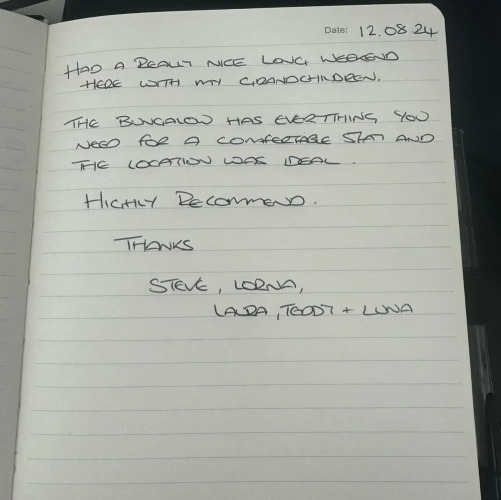 Date: 12.08.24
HAD A REALLY NICE LONG WEEKEND
HERE WITH MY GRANDCHILDREN.
THE BUNGALOW HAS EVERYTHING YOU
NEED FOR A COMFERTABLE STAY AND
THE LOCATION WAS IDEAL.
HIGHLY RECOMMEND.
THANKS
STEVE, LORNA,
LAURA, TEDDY + LUNA